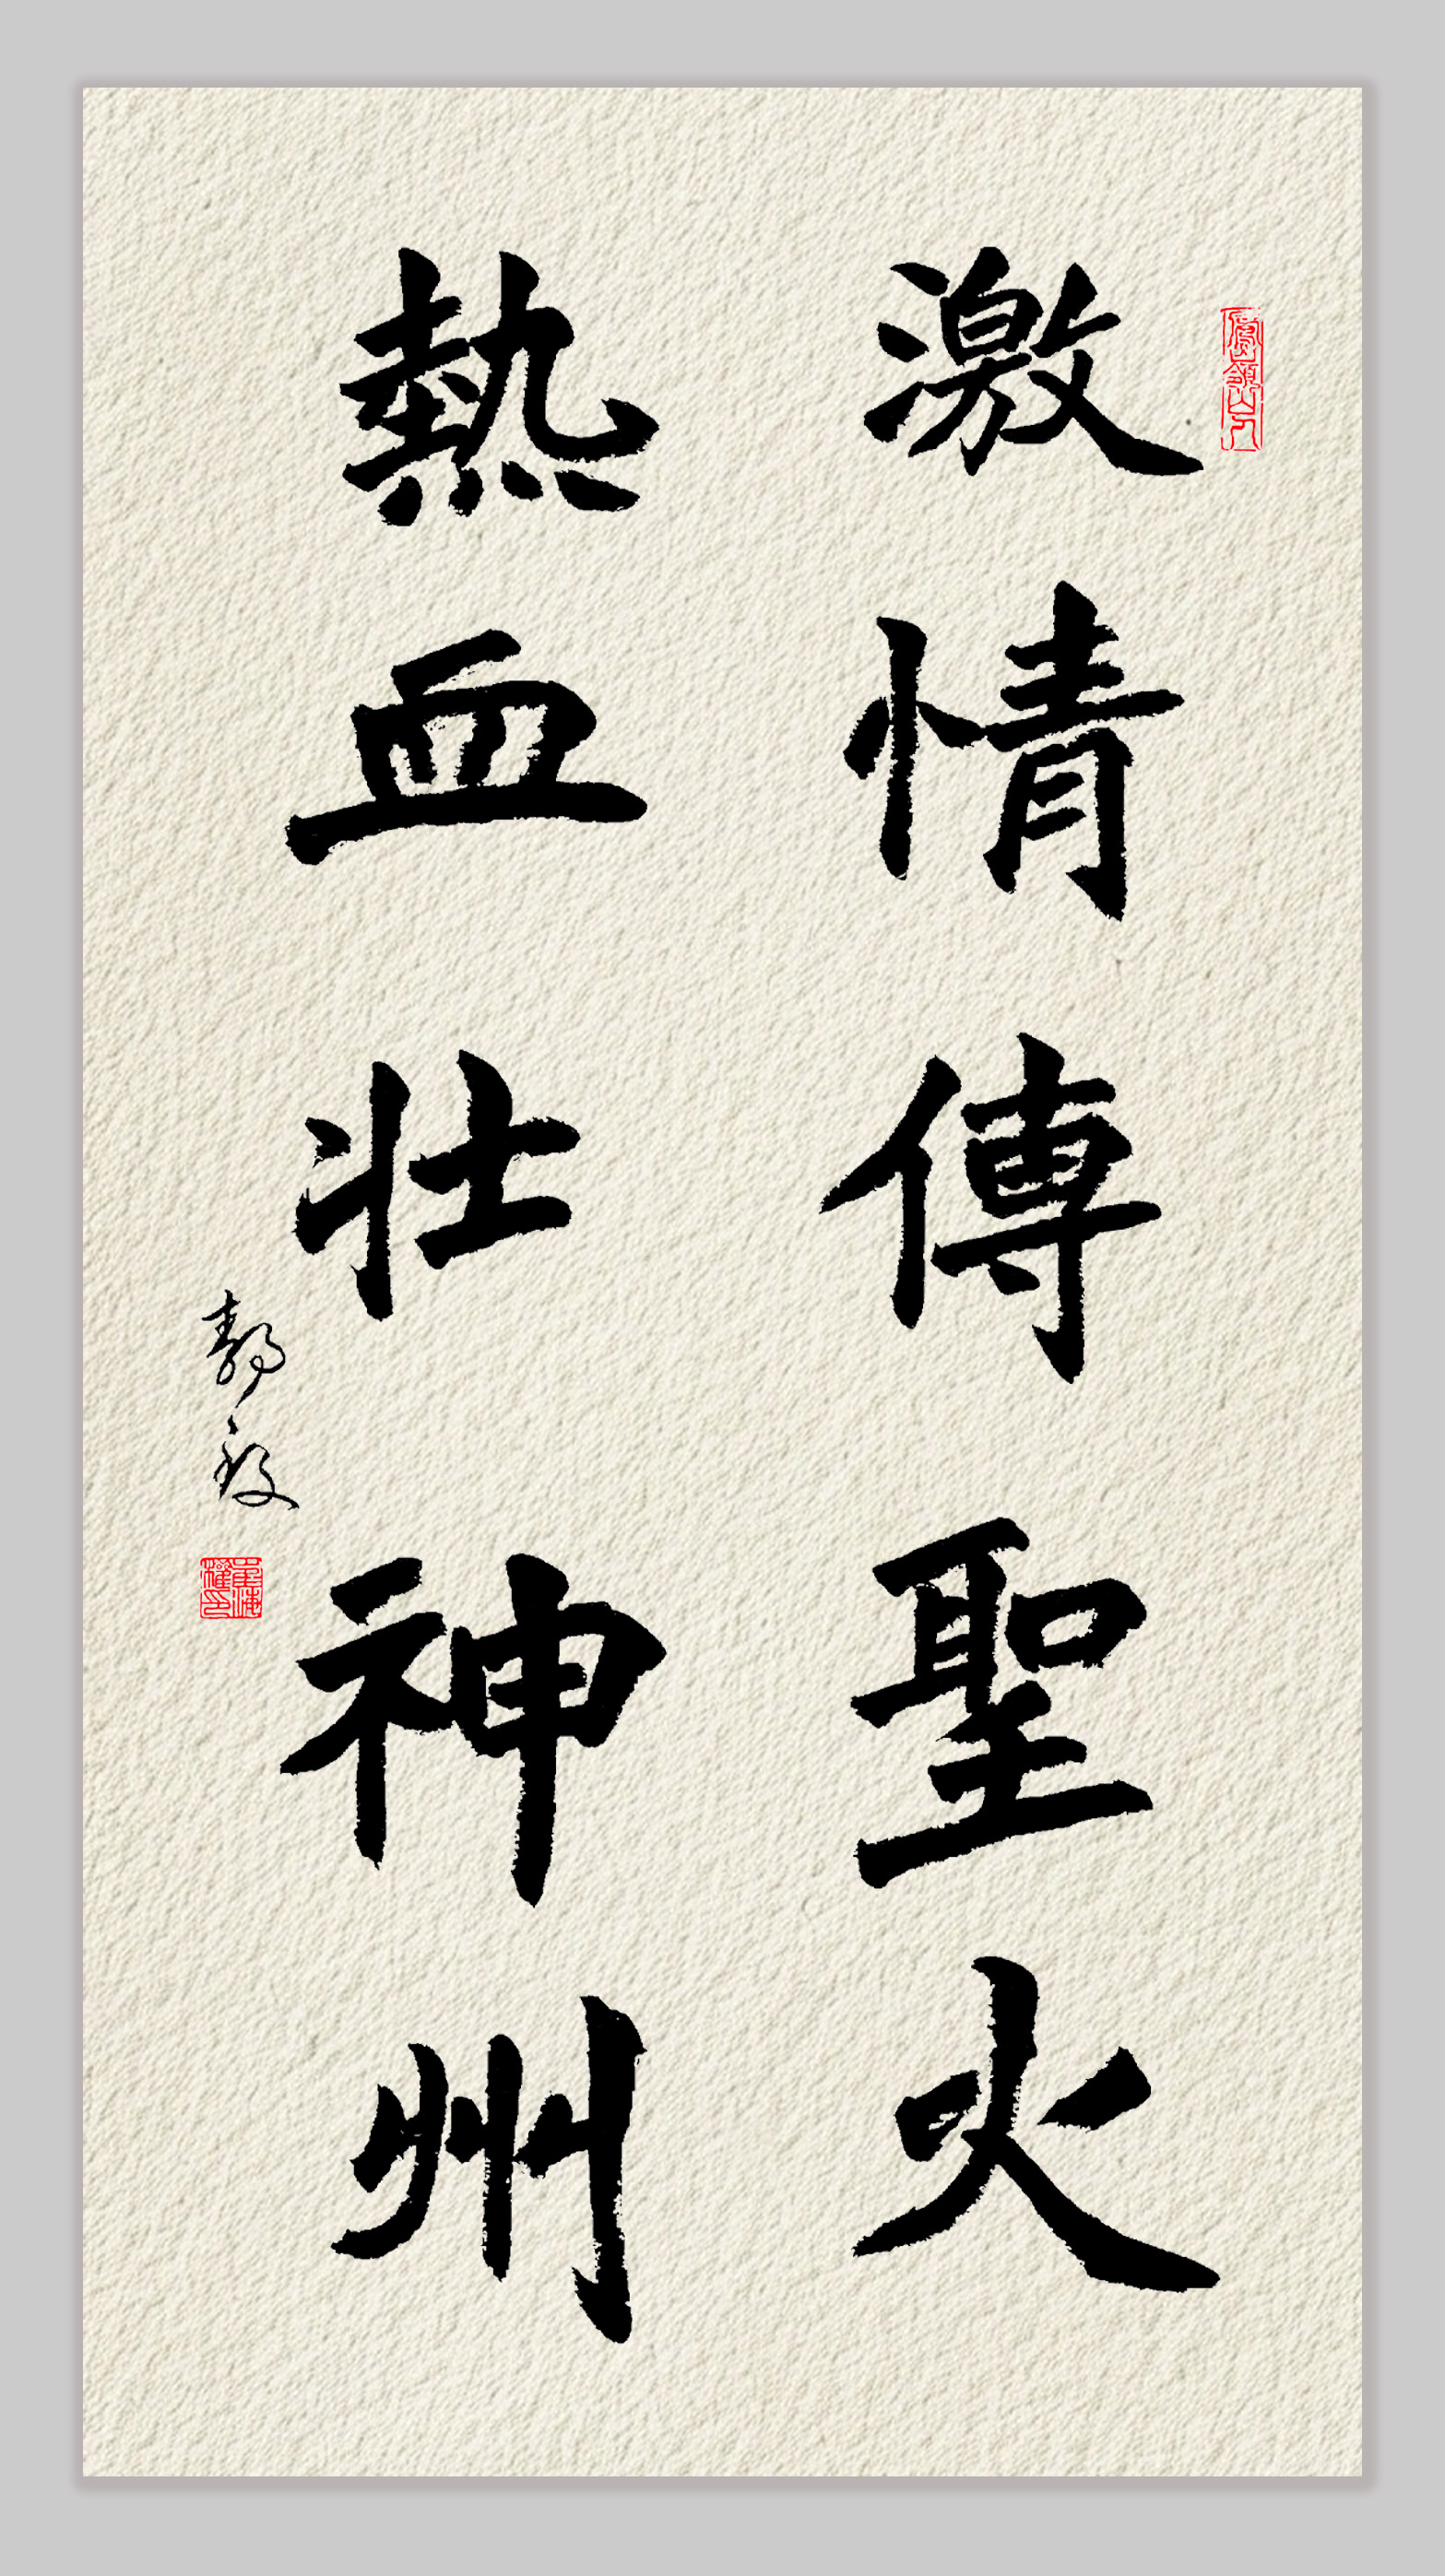 激情傳聖火
熱血壯神州